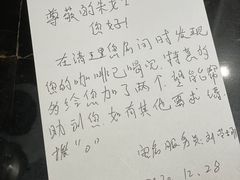 尊敬的朱女士
您好!
在清理您房间时发现
您的咖啡已喝完,特意的
给您加了两个,望能帮
助到您,如有其他需求请
拨"0"
客房服务员:刘
12.28